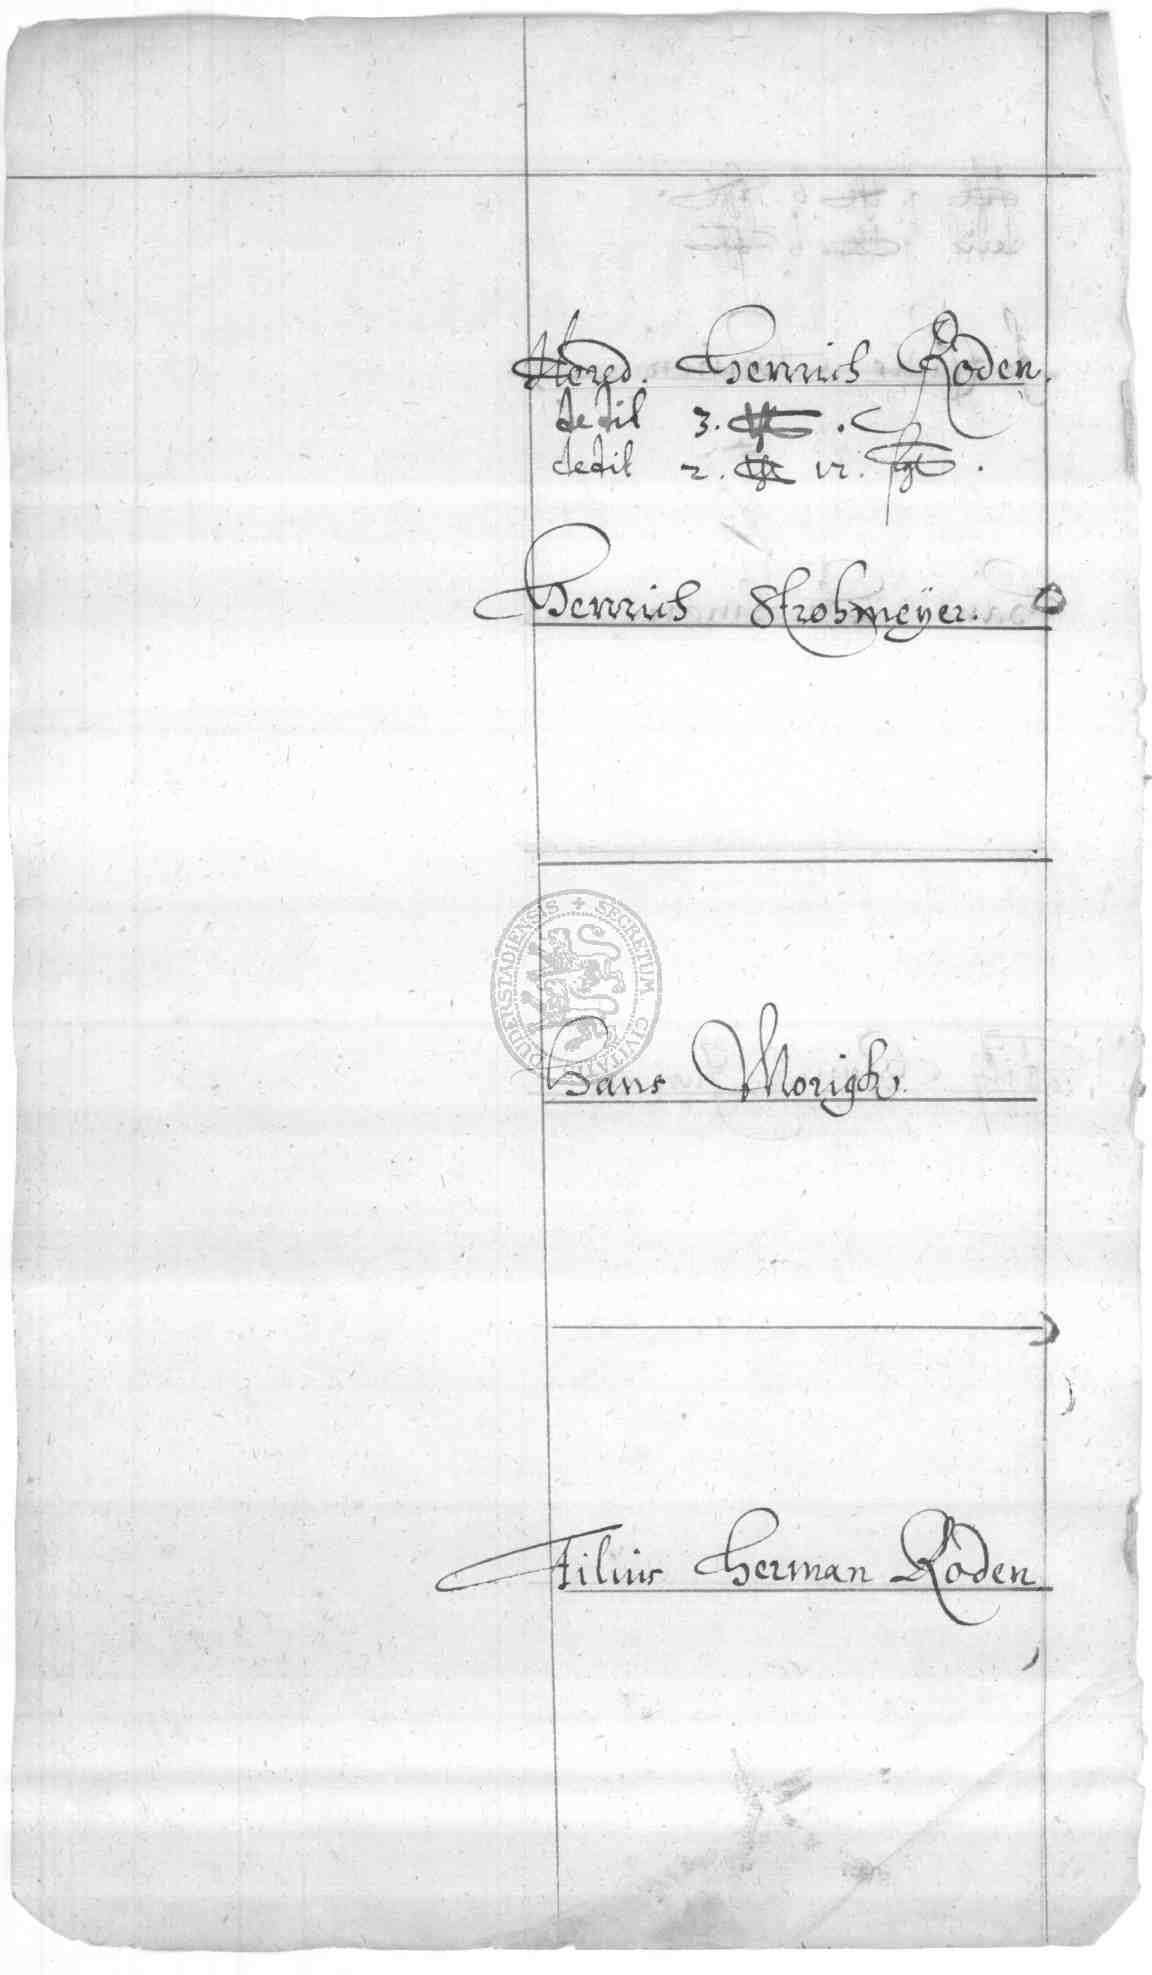 Hered. Henrich Roden.
dedit 3.
dedit 2. 12.
Henrich Strohmeÿer.
SECRETUM CIVITATIS DUDERSTADIENSIS
Hans Morigk.
Filius Herman Roden